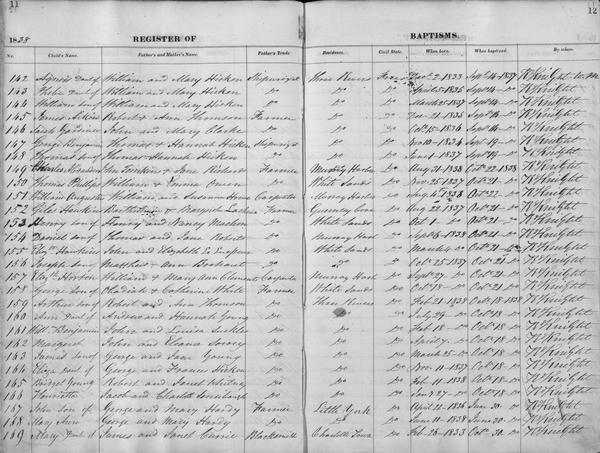 11
12
1838 REGISTER OF BAPTISMS.
No. Child's Name. Father's and Mother's Name. Father's Trade Residence. Civil State. When born. When baptized. By whom.
142 Agnes Daut of William and Mary Hicken Shipwright Three Rivers Decr 2 1833 Septr 14 1837 W Knight
143 Phebe Daut of William and Mary Hicken Do Do April 5 1835 Septr 14 Do W Knight
144 William Son of William and Mary Hicken Do Do March 25 1837 Septr 14 Do W Knight
145 James Robert & Ann Thomson Farmer Do Decr 21 1835 Septr 14 Do W Knight
146 Sarah Gardner John and Mary Clarke Do Do Octr 15 1836 Septr 14 Do W Knight
147 George Benjamin Thomas & Hannah Hicken Shipwright Do Novr 10 1834 Septr 19 Do W Knight
148 Thomas Son of Thomas & Hannah Hicken Do Do June 1 1837 Septr 19 Do W Knight
149 Charles John & Jane Richards Farmer Murray Harbor Augt 31 1838 Octr 22 1838 W Knight
150 Thomas Phillips William & Emma Do White Sands Novr 25 1837 Octr 21 Do W Knight
151 William Augustus William and Susanna Howe Carpenter Murray Harbor 1838 Octr 21 Do W Knight
152 Giles Hawkins & Margaret Farmer Guernsey Cove 22 1837 Octr 21 Do W Knight
153 Henry Son of Henry and Nancy Machon Do White Sands Octr 1 Do Octr 21 Do W Knight
154 Daniel Son of Thomas and Jane Roberts Do Murray Harb Septr 6 1838 Octr 21 Do W Knight
155 Elizth Hawkins John and Elizabeth Do White Sands March 4 Do Octr 21 Do W Knight
156 Joseph Matthew & Ann Do Do Octr 25 1837 Octr 21 Do W Knight
157 Elizth William & Mary Ann Clements Carpenter Murray Harb Septr 27 Do Octr 21 Do W Knight
158 George Son of Obadiah & Catherine White Farmer White Sands Octr 18 Do Octr 21 Do W Knight
159 Arthur Son of Robert and Ann Thomson Do Three Rivers Feb 21 1838 Octr 18 1838 W Knight
160 Ann Daut of Andrew and Hannah Young Do Do July 29 Do Octr 18 Do W Knight
161 Willm Benjamin John and Louisa Do Do Feb 18 Do Octr 18 Do W Knight
162 Margaret John and Eleanor Do Do April 7 Do Octr 18 Do W Knight
163 James Son of George and Jane Young Do Do March 25 Do Octr 18 Do W Knight
164 Eliza Daut of George and Frances Hicken Do Do Novr 11 1837 Octr 18 Do W Knight
165 Bridget Young Robert and Janet Do Do Feb 11 1838 Octr 18 Do W Knight
166 Henrietta Jacob and Charlotte Do Do Jany 27 Do Octr 18 Do W Knight
167 John Son of George and Mary Hardy Farmer Little York April 22 1836 June 30 Do W Knight
168 Mary Ann George and Mary Hardy Do Do June 11 1838 June 30 Do W Knight
169 Mary Daut of James and Janet Currie Blacksmith Charlotte Town Feb 26 1833 Octr 30 Do W Knight